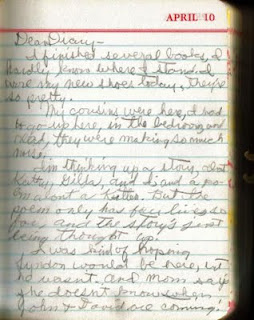 APRIL 10
Dear Diary –
I finished several books, I
hardly know where I stand. I
wore my new shoes today, they're
so pretty.
My cousins were here, I had
to go up here, in the bedroom and
read, they were making so much
noise.
I'm thinking up a story, about
Kathy, Gilda, and I and a po-
em about a Kitten. But the
poem only has four lines so
far, and the story's just
being thought up.
I was kind of hoping
Lyndon would be here, but
he wasn't. And Mom says
she doesn't know when
John & David are coming.